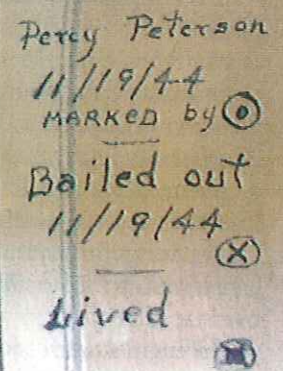 Percy Peterson
11/19/44
MARKED by ⊙
Bailed out
11/19/44
ⓧ
Lived